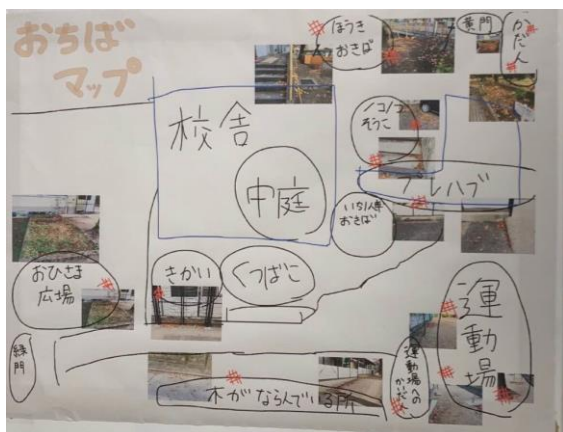 おちば
マップ
ほうき
おきば
黄門
かだん
校舎
中庭
ノコノコ
そうこ
プレハブ
いなん車
おきば
おひさま
広場
きかい
くつばこ
緑門
運動場
運動場への
かいだん
木がならんでいる所